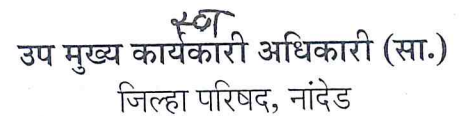 उप मुख्य कार्यकारी अधिकारी (सा.)
जिल्हा परिषद, नांदेड